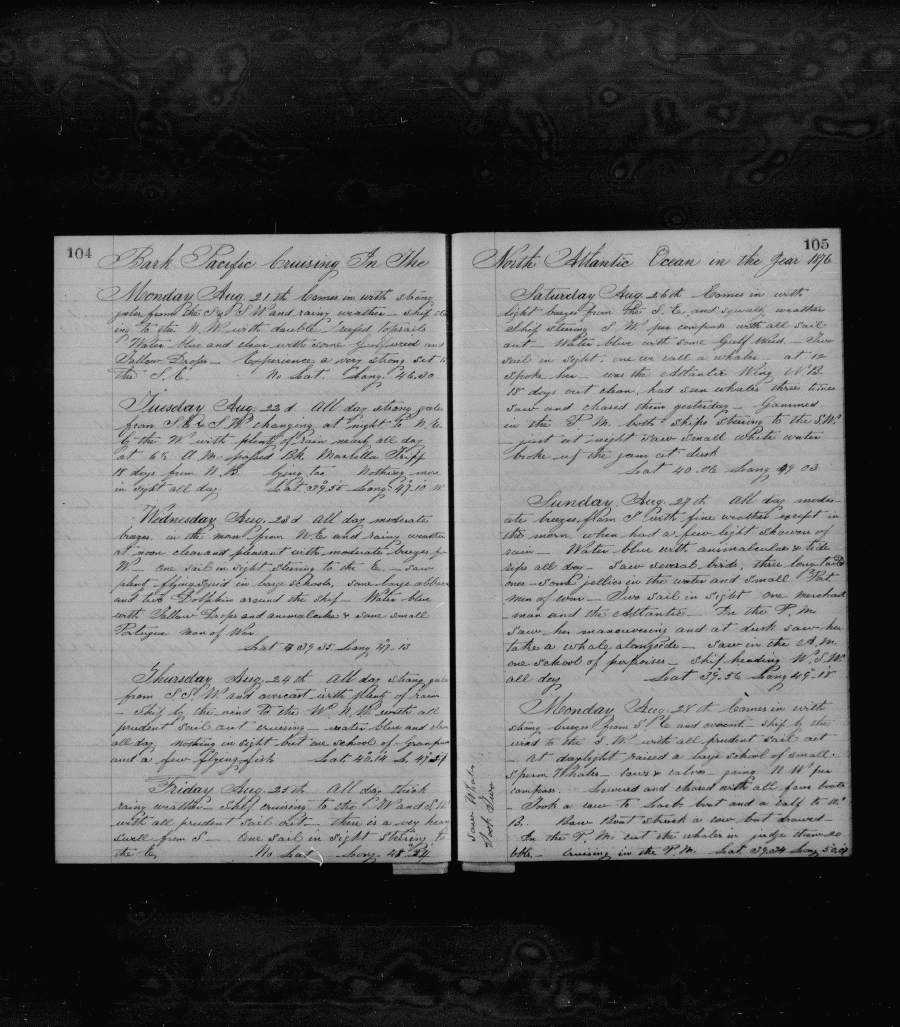 104
Bark Pacific Cruising In The
Monday Aug. 21th Comes in with strong
gales from the S & S W and rainy weather – ship
ing to the N. W. with double reefed topsails
Water blue and clear with some Gulfweed and
Tallow Drops – Experience a very strong set to
the S. E. No Lat. Long. 46.30
Tuesday Aug. 22d All day strong gales
from S.E & S. W. changing at night to N. E.
by the W. with plenty of rain nearly all day
at 6½ A. M. passed Bk Marcella Tripp
18 days from N. B. lying too Nothing more
in sight all day Lat 39.55 Long. 47.10 W
Wednesday Aug. 23d All day moderate
breezes. in the morn from N.E and rainy weather
at noon clear and pleasant with moderate breezes from
W – One sail in sight steering to the E. – Saw
plenty flying squid in large schools, some large
and two Dolphin around the ship – Water blue
with Tallow Drops and animalculae & some small
Portugue Man of War
Lat 39 35 Long 47. 13
Thursday Aug. 24th All day strong gales
from S S. W and overcast with plenty of rain
– Ship by the wind to the W. N. W. with all
prudent sail out cruising – water blue and clear
all day nothing in sight but one school of Grampus
and a few flying fish Lat. 40.14 Lo 47 21
Friday Aug. 25th All day thick
rainy weather – Ship cruising to the W and S. W
with all prudent sail out – there is a very heavy
swell from S – One sail in sight steering to
the E, No Lat Long. 48 24
105
North Atlantic Ocean in the Year 1876
Saturday Aug. 26th Comes in with
light breezes from the S. E. and squally weather
Ship steering S. W. per compass with all sail
out – Water blue with some Gulf Weed – Two
sail in sight. one we call a whaler – at 12
spoke her – was the Atlantic Wing N. B.
18 days out clean, had seen whales three times
saw and chased them yesterday – Gammed
in the P. M. both ships steering to the S.W.
– just at night saw small white water
broke up the gam at dusk
Lat 40.06 Long 49 03
Sunday Aug. 27th All day moder-
ate breezes from S with fine weather except in
the morn. when had a few light showers of
rain – Water blue with animalculae & tide
rips all day – Saw several birds, three long tailed
ones – Some jellies in the water and small Port
Men of War – Two sail in sight one merchant
man and the Atlantic – In the P. M
saw her manoeuvering and at dusk saw her
take a whale alongside – saw in the A. M.
one school of porpoises – Ship heading W. S. W.
all day Lat 39.56 Long 49.18
Monday Aug. 28th Comes in with
strong breezes from S & E and overcast – ship by the
wind to the S. W. with all prudent sail out
– at daylight raised a large school of small
Sperm Whales – cows & calves – going N W per
compass. Lowered and chased with all four boats
– Took a cow to Larb. boat and a calf to W.
B. – Bow Boat struck a cow but drawed –
In the P. M. cut the whales in judge them 20
bbls. – Cruising in the P. M. Lat. 39.34 Long 50.09
Saw Whales
Took Two